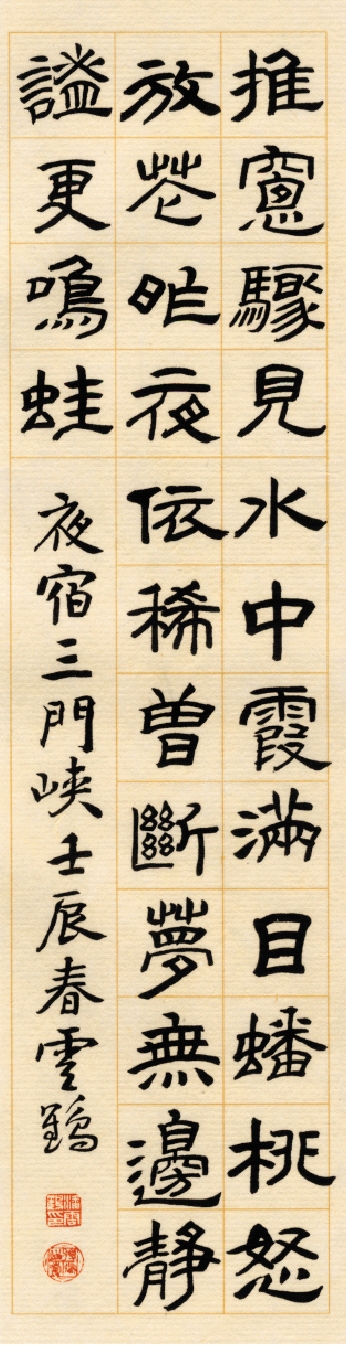 推窻驟見水中霞滿目蟠桃怒
放花昨夜依稀曾斷夢無邊靜
謐更鳴蛙
夜宿三門峽壬辰春雲鶴